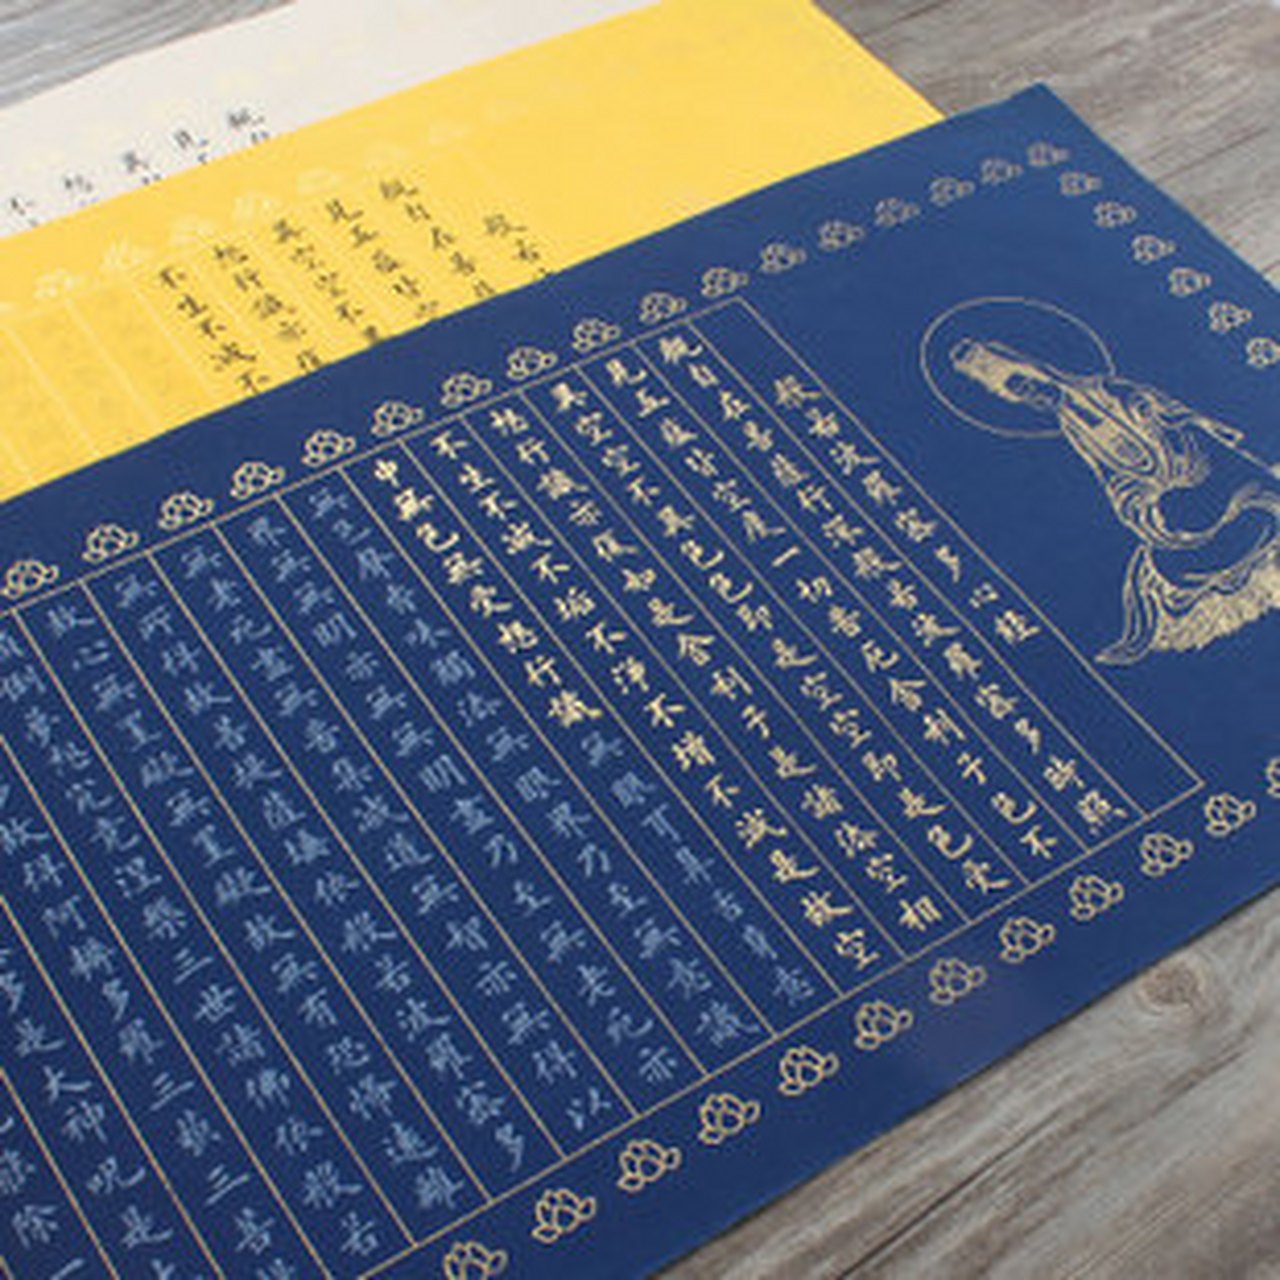 般若波羅蜜多心經
觀自在菩薩行深般若波羅蜜多時照
見五蘊皆空度一切苦厄舍利子色不
異空空不異色色即是空空即是色受
想行識亦復如是舍利子是諸法空相
不生不滅不垢不淨不增不減是故空
中無色無受想行識無眼耳鼻舌身意
無色聲香味觸法無眼界乃至無意識
界無無明亦無無明盡乃至無老死亦
無老死盡無苦集滅道無智亦無得以
無所得故菩提薩埵依般若波羅蜜多
故心無罣礙無罣礙故無有恐怖遠離
顛倒夢想究竟涅槃三世諸佛依般若
故得阿耨多羅三藐三菩提
多是大神咒是大
能除一
般若
觀自在菩薩
見五蘊皆空
異空空不異
想行識亦復
不生不滅不
觀
見
異
想
不